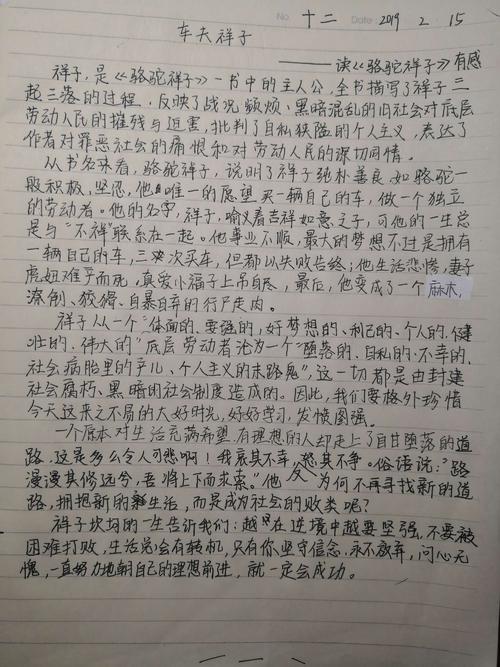 No. 十二 Date 2019 2 15
车夫祥子
——读《骆驼祥子》有感
祥子，是《骆驼祥子》一书中的主人公，全书描写了祥子三
起三落的过程，反映了战况频烦、黑暗混乱的旧社会对底层
劳动人民的摧残与迫害，批判了自私狭隘的个人主义，表达了
作者对罪恶社会的痛恨和对劳动人民的深切同情。
从书名来看，骆驼祥子，说明了祥子纯朴善良，如骆驼一
般积极，坚忍，他唯一的愿望买一辆自己的车，做一个独立
的劳动者。他的名字，祥子，喻义着吉祥如意之子，可他的一生总
是与“不祥”联系在一起。他事业不顺，最大的梦想不过是拥有
一辆自己的车，三次买车，但都以失败告终；他生活悲惨，妻子
虎妞难产而死，真爱小福子上吊自尽，最后，他变成了一个麻木，
潦倒、狡猾、自暴自弃的行尸走肉。
祥子从一个“体面的、要强的，好梦想的、利己的、个人的、健
壮的、伟大的”底层劳动者沦为一个“堕落的、自私的、不幸的、
社会病胎里的产儿、个人主义的末路鬼”，这一切都是由封建
社会腐朽、黑暗的社会制度造成的。因此，我们要格外珍惜
今天这来之不易的大好时光，好好学习，发愤图强。
一个原本对生活充满希望、有理想的人却走上了自甘堕落的道
路，这是多么令人可悲啊！我哀其不幸，怒其不争。俗语说：“路
漫漫其修远兮，吾将上下而求索。”他又为何不再寻找新的道
路，拥抱新的生活，而是成为社会的败类呢？
祥子坎坷的一生告诉我们：越是在逆境中越要坚强，不要被
困难打败，生活总会有转机，只有你坚守信念，永不放弃，问心无
愧，一直努力地朝自己的理想前进，就一定会成功。